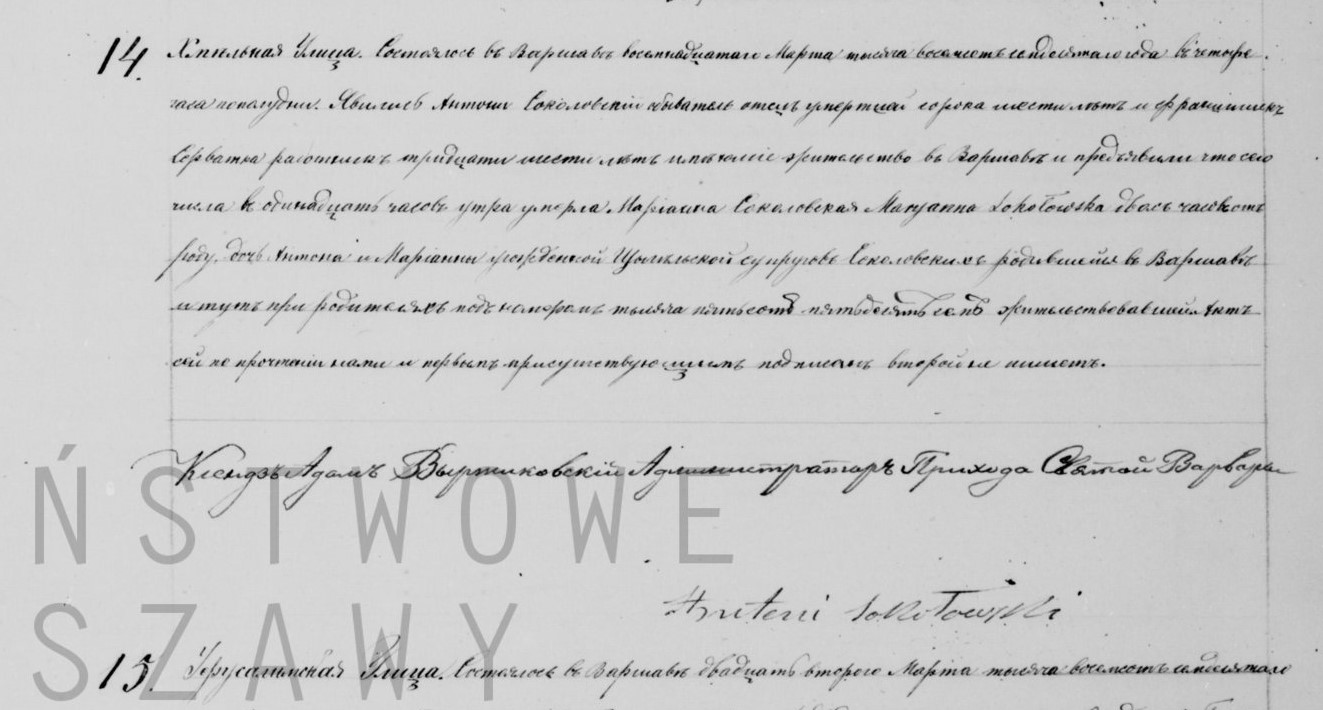 14. Хмѣльная Улица. Состоялось въ Варшавѣ восемнадцатаго Марта тысяча восемсотъ семдесятаго года въ четыре
часа пополудни. Явились Антоній Соколовскій обыватель отецъ умершей сорока шести лѣтъ и Францишекъ
работникъ тридцати шести лѣтъ имѣющіе жительство въ Варшавѣ и предъявили что сего
числа въ одинадцать часовъ утра умерла Маріанна Соколовская Maryanna Sokołowska часовъ отъ
роду, дочь Антона и Маріанны урожденной супруговъ Соколовскихъ родившейся въ Варшавѣ
и тутъ при родителяхъ подъ номеромъ тысяча пятьсотъ пятьдесятъ жительствовавшей. Актъ
сей по прочтеніи нами и первымъ присутствующимъ подписанъ второй не пишетъ.
Ксендзъ Адамъ Администраторъ Прихода Святой Варвары
Antoni Sokołowski
ŃSTWOWE
SZAWY
15. Іерусалимская Улица. Состоялось въ Варшавѣ двадцать второго Марта тысяча восемсотъ семдесятаго